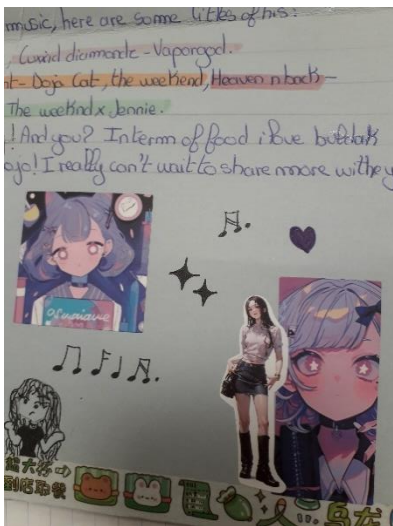 music, here are some titles of his:
diamonds - Vaporgod.
t - Doja Cat, the weekend, Heaven n back -
The weeknd x Jennie.
! And you? In term of food i love
ojo! I really can't wait to share more withe y
熊大仔
到店取餐